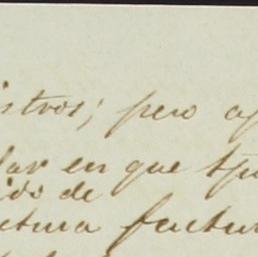 istros; pero ap
lar en que
ido de
ctura factur